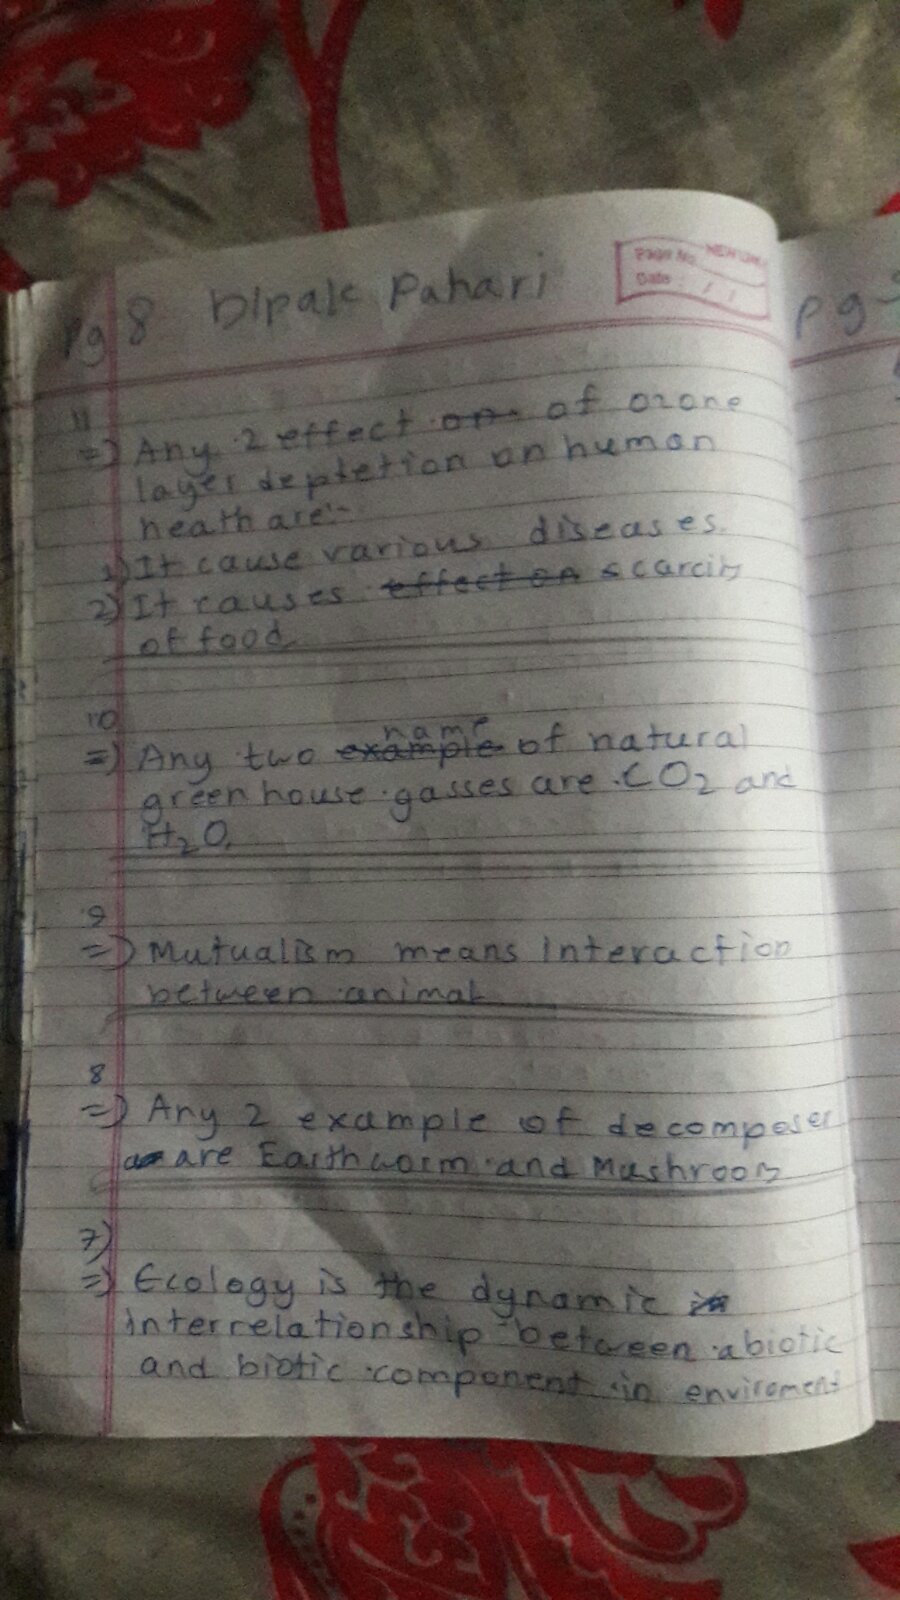 pg 8 Dipak Pahari
Page No. NEW
Date : / /
pg
11
=) Any 2 effect on of ozone
layer depletion on human
heath are:-
1) It cause various diseases.
2) It causes effect on scarcity
of food
10
name
=) Any two example of natural
green house gasses are CO2 and
H2O.
9
=) Mutualism means Interaction
between animal
8
=) Any 2 example of decomposer
are Earthworm and Mushroom
7)
=) Ecology is the dynamic in
interrelationship between abiotic
and biotic component in enviroment